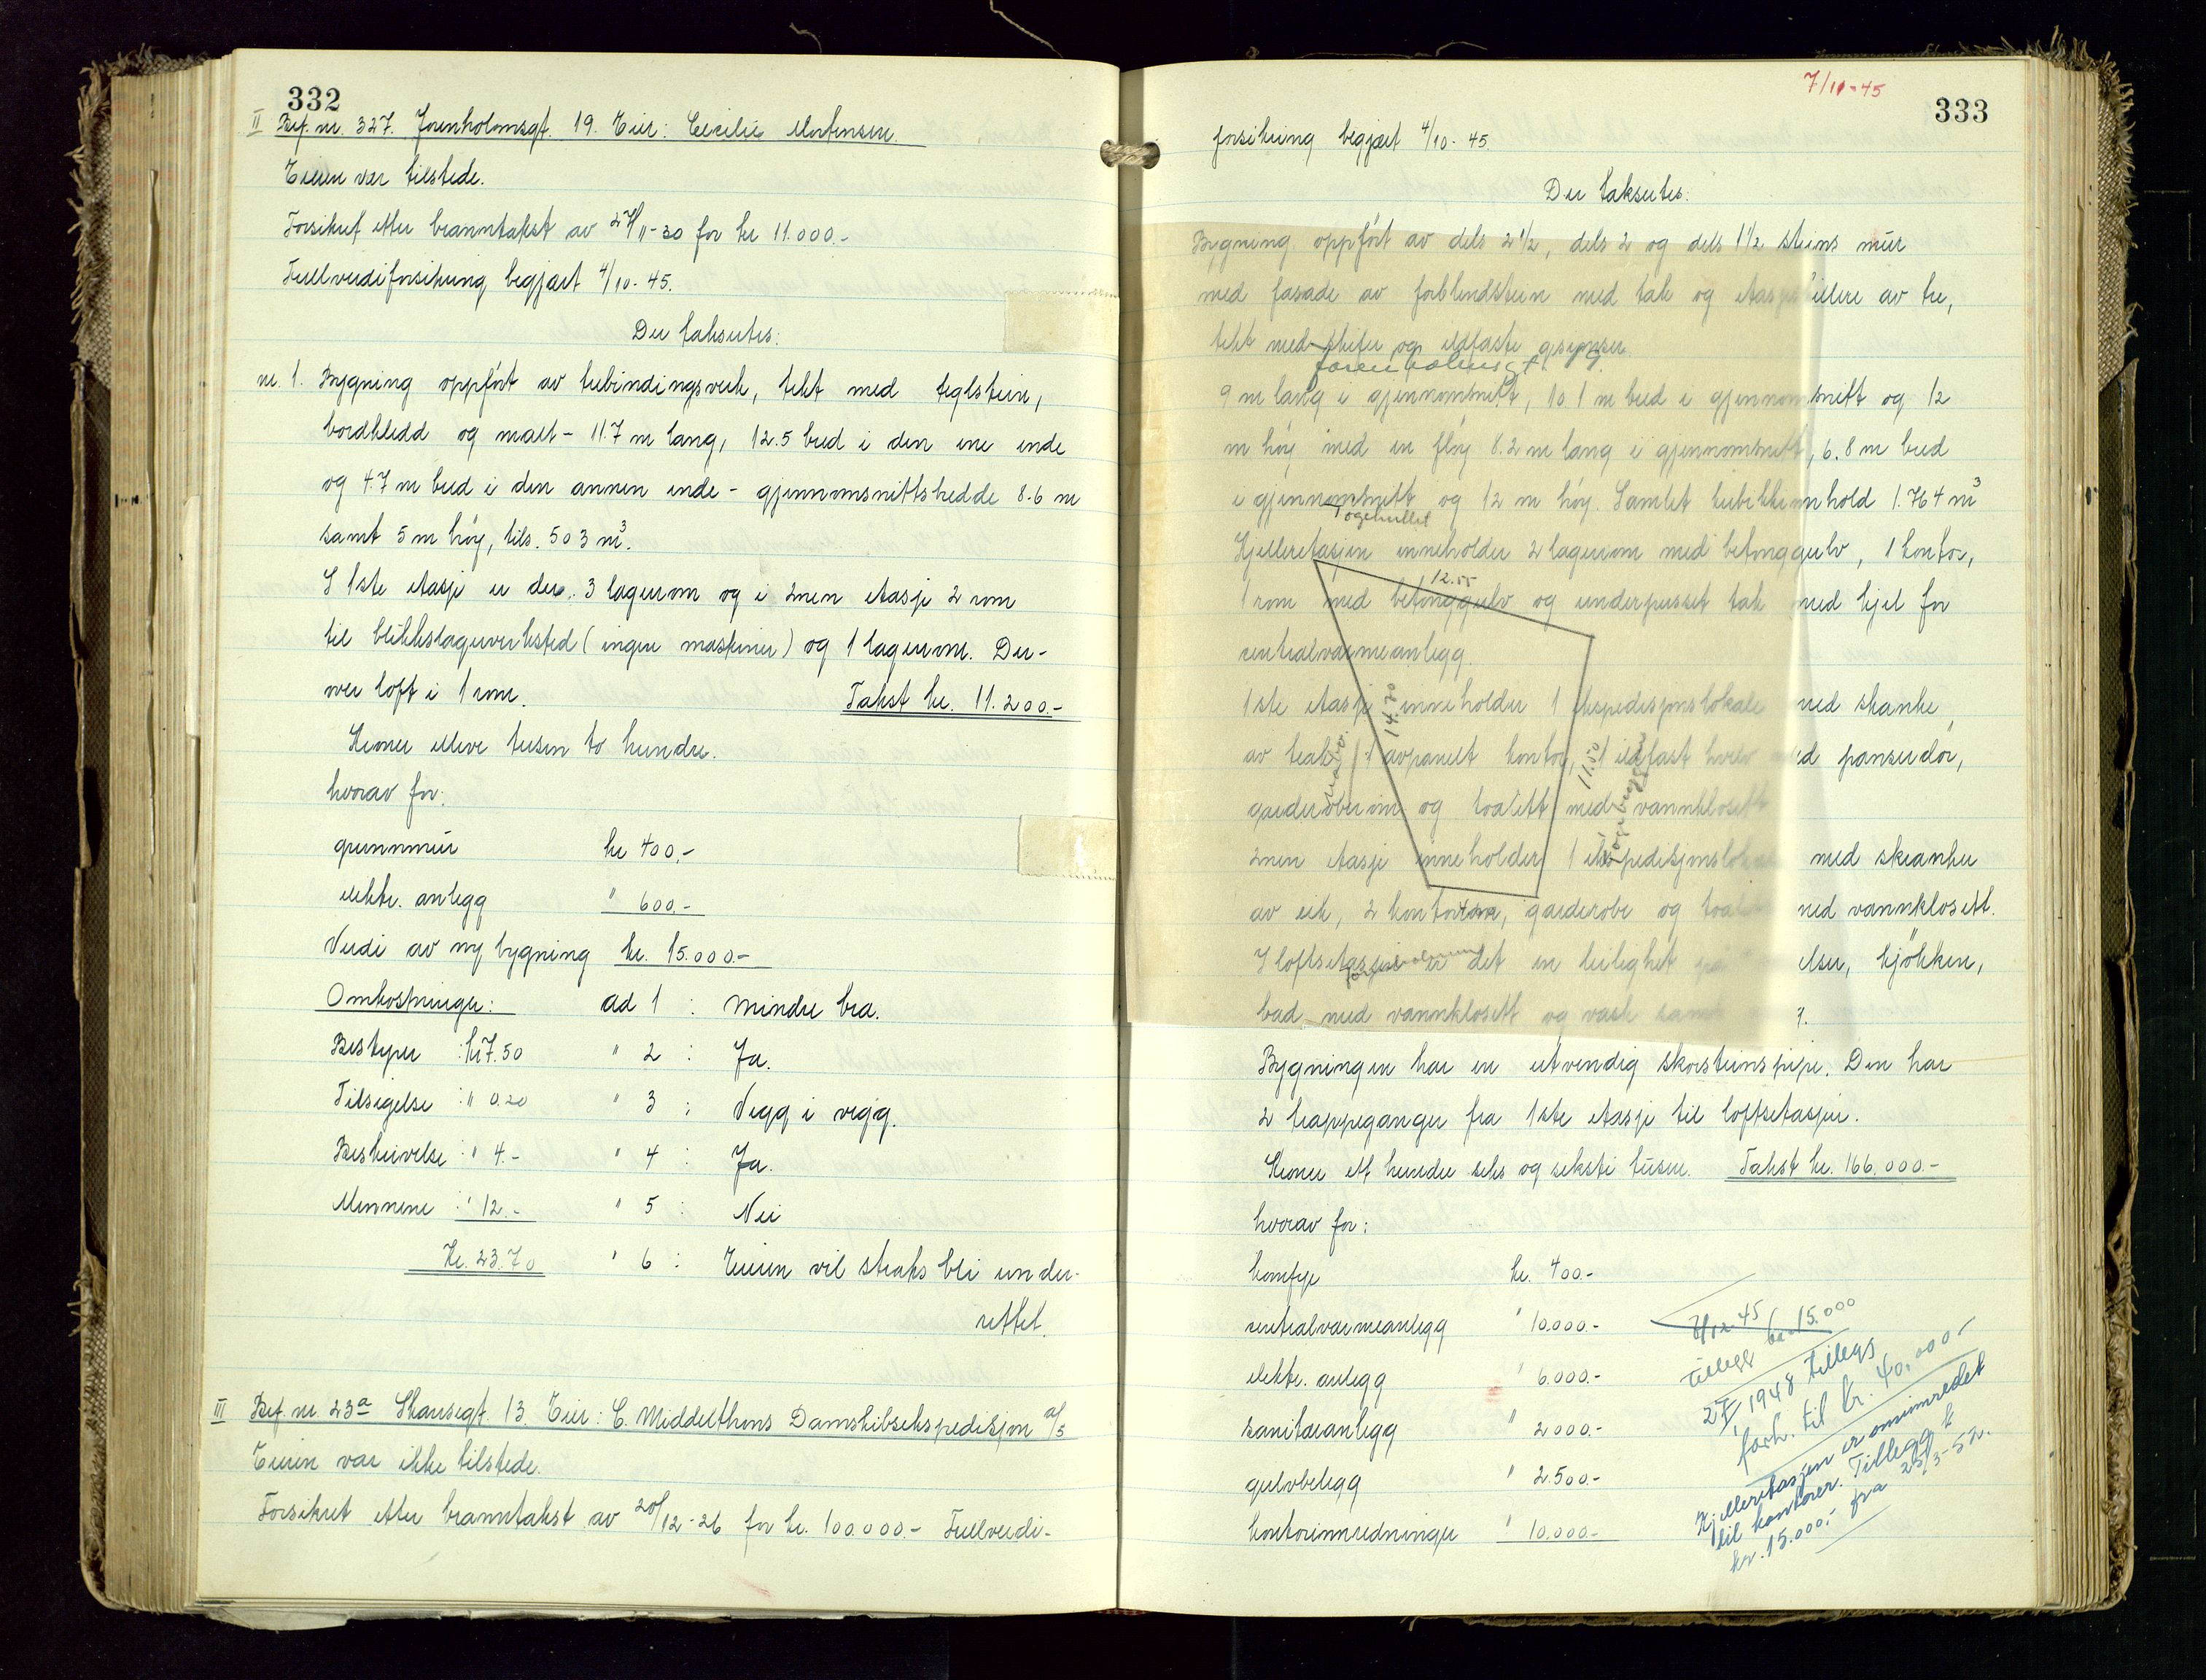 332
II Bef. nr. 327. Jorenholmsgt. 19. Eier: Cecilie Mortensen.
Eieren var tilstede.
Forsikret etter branntakst av 27/11-30 for kr 11.000.-
Fullverdiforsikring begjært 4/10-45.
Der takseres:
nr. 1. Bygning oppført av trebindingsverk, tekt med teglstein,
bordkledd og malt - 11.7 m lang, 12.5 bred i den ene ende
og 4.7 m bred i den annen ende - gjennomsnittsbredde 8.6 m
samt 5 m høy, tils. 503 m³.
I 1ste etasje er der 3 lagerrom og i 2nen etasje 2 rom
til blikkslagerverksted (ingen maskiner) og 1 lagerrom. Der-
over loft i 1 rom. Takst kr. 11.200.-
Kroner elleve tusen to hundre.
hvorav for:
grunnmur kr 400.-
elektr. anlegg " 600.-
Verdi av ny bygning kr. 15.000.-
Omkostninger: ad 1 : Mindre bra.
Bestyrer : kr 7.50 " 2 : Ja.
Tilsigelse : " 0.20 " 3 : Vegg i vegg.
Beskrivelse : " 4.- " 4 : Ja.
Mennene : " 12.- " 5 : Nei
Kr. 23.70 " 6 : Eieren vil straks bli under-
rettet.
III Bef. nr. 23a Skansegt. 13. Eier: C. Middelthons Damskibsekspedisjon a/s
Eieren var ikke tilstede.
Forsikret etter branntakst av 20/12-26 for kr. 100.000.- Fullverdi-
7/11-45
333
forsikring begjært 4/10-45.
Der takseres:
Bygning oppført av dels 2 1/2, dels 2 og dels 1 1/2 steins mur
med fasade av forblendstein med tak og etasjeskillere av tre,
tekt med skifer og ildfaste gesimser.
Jorenholmsgt. 19.
9 m lang i gjennomsnitt, 10.1 m bred i gjennomsnitt og 12
m høy med en fløy 8.2 m lang i gjennomsnitt, 6.8 m bred
i gjennomsnitt og 12 m høy. Samlet kubikkinnhold 1.764 m³
Kjelleretasjen inneholder 2 lagerrom med betonggulv, 1 kontor,
12.55
1 rom med betonggulv og underpusset tak med kjel for
sentralvarmeanlegg.
14.70
1ste etasje inneholder 1 ekspedisjonslokale med skanke
av teak, 1 avpanelt kontor, 1 ildfast hvelv med panserdør,
11.50
garderoberom og toalett med vannklosett
2nen etasje inneholder 1 ekspedisjonslokale med skranker
av eik, 2 kontorer, garderobe og toalett med vannklosett.
I loftsetasjen er det en leilighet på elser, kjøkken,
bad med vannklosett og vask samt
Bygningen har en utvendig skorsteinspipe. Den har
2 trappeganger fra 1ste etasje til loftsetasjen.
Kroner ett hundre seks og seksti tusen. Takst kr. 166.000.-
hvorav for:
komfyr kr. 400.-
sentralvarmeanlegg " 10.000.-
elektr. anlegg " 6.000.-
sanitæranlegg " 2.000.-
gulvbelegg " 2.500.-
kontorinnredninger " 10.000.-
8/12.45
tillegg kr. 15.000
2/I 1948 tillegs
forh. til kr. 40.000-
Kjelleretasjen er ominnredet
til kontorer. Tillegg
kr. 15.000.- fra 25/3-52.